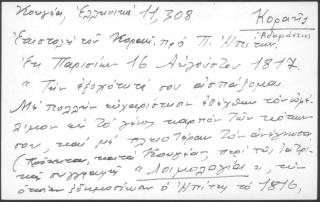 Κουγέας, Ἑλληνικά 11, 308
Κοραῆς
(Ἀδαμάντιος
Ἐπιστολὴ τοῦ Κοραῆ πρὸ Π. Ἠπίτην.
Ἐκ Παρισίων 16 Αὐγούστου 1817.
"Τὴν ἐξοχότητά σου ἀσπάζομαι.
Μὲ πολλὴν εὐχαρίστησιν ἐδέχθην τὸν ὠφέ-
λιμον εἰς τὸ γένος καρπὸν τῶν κόπων
σου, καὶ μὲ πλειοτέραν τὸν ἀνέγνωσα
(Πρόκειται, κατὰ Κουγέαν, περὶ τοῦ ἰατρι-
κοῦ συγγραφῆ "Λοιμολογία", τὴν
ὁποίαν ἐδημοσίευσεν ὁ Ἠπίτης τὸ 1816,